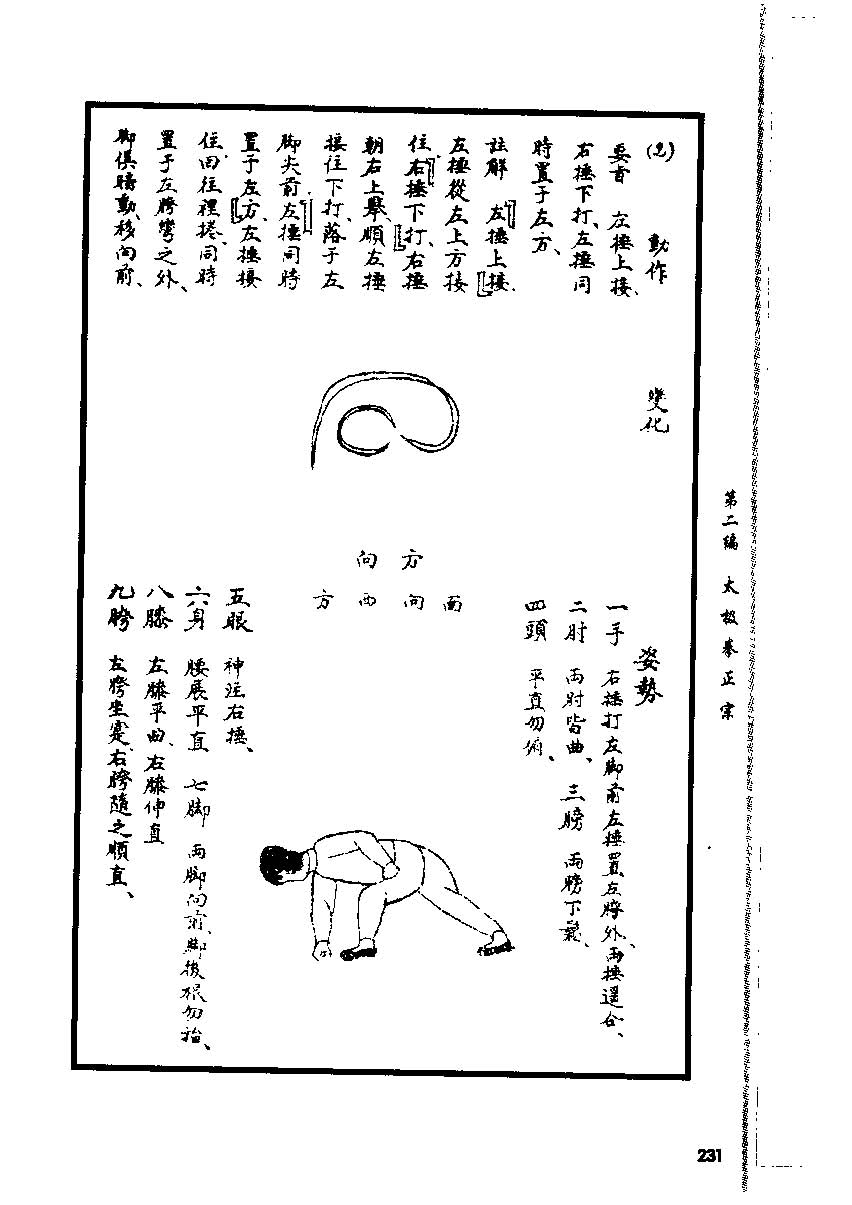 (2) 動作
要言 左捶上接、
右捶下打、左捶同
時置于左方、
註解 左捶上接、
左捶從左上方接
住右捶下打、右捶
朝右上舉順左捶
接住下打、落于左
脚尖前左捶同時
置于左方、左捶接
住由往裡捲、同時
置于左胯彎之外、
脚俱踏動、移向前、
變化
方向
面向西方
姿勢
一手 右捶打左脚前左捶置左胯外、兩捶遥合、
二肘 兩肘皆曲、 三膀 兩膀下鬆、
四頭 平直勿俯、
五眼 神注右捶、
六身 腰展平直 七脚 兩脚向前、脚後根勿抬、
八膝 左膝平曲、右膝伸直
九胯 左胯坐寔、右胯隨之順直、
第二編 太极拳正宗
231